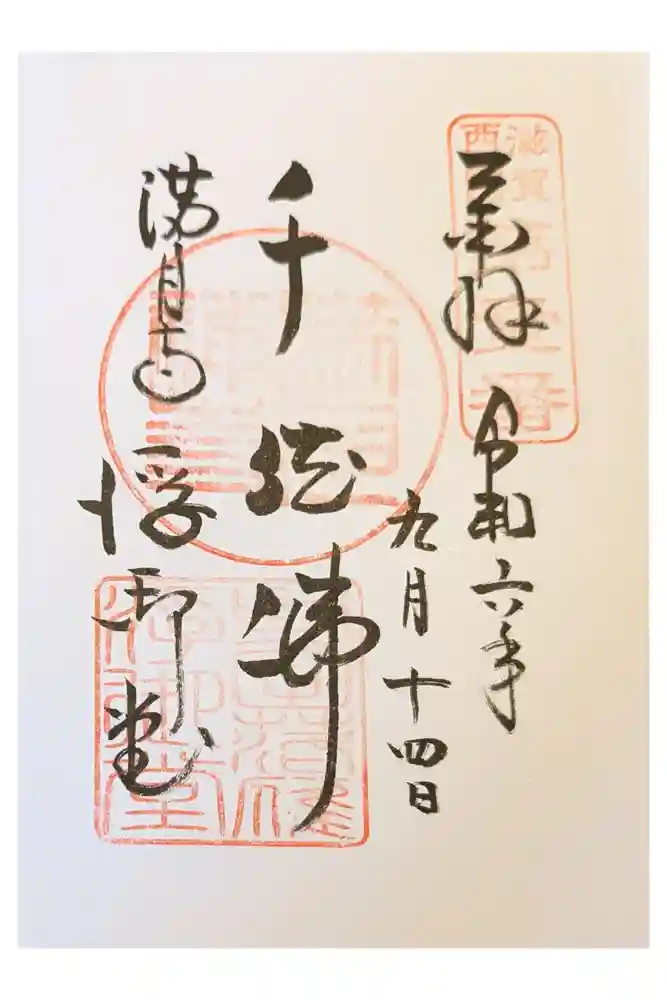 奉拝
令和六年
九月十四日
千体佛
満月寺
浮御堂
滋賀
西
番
浮御堂